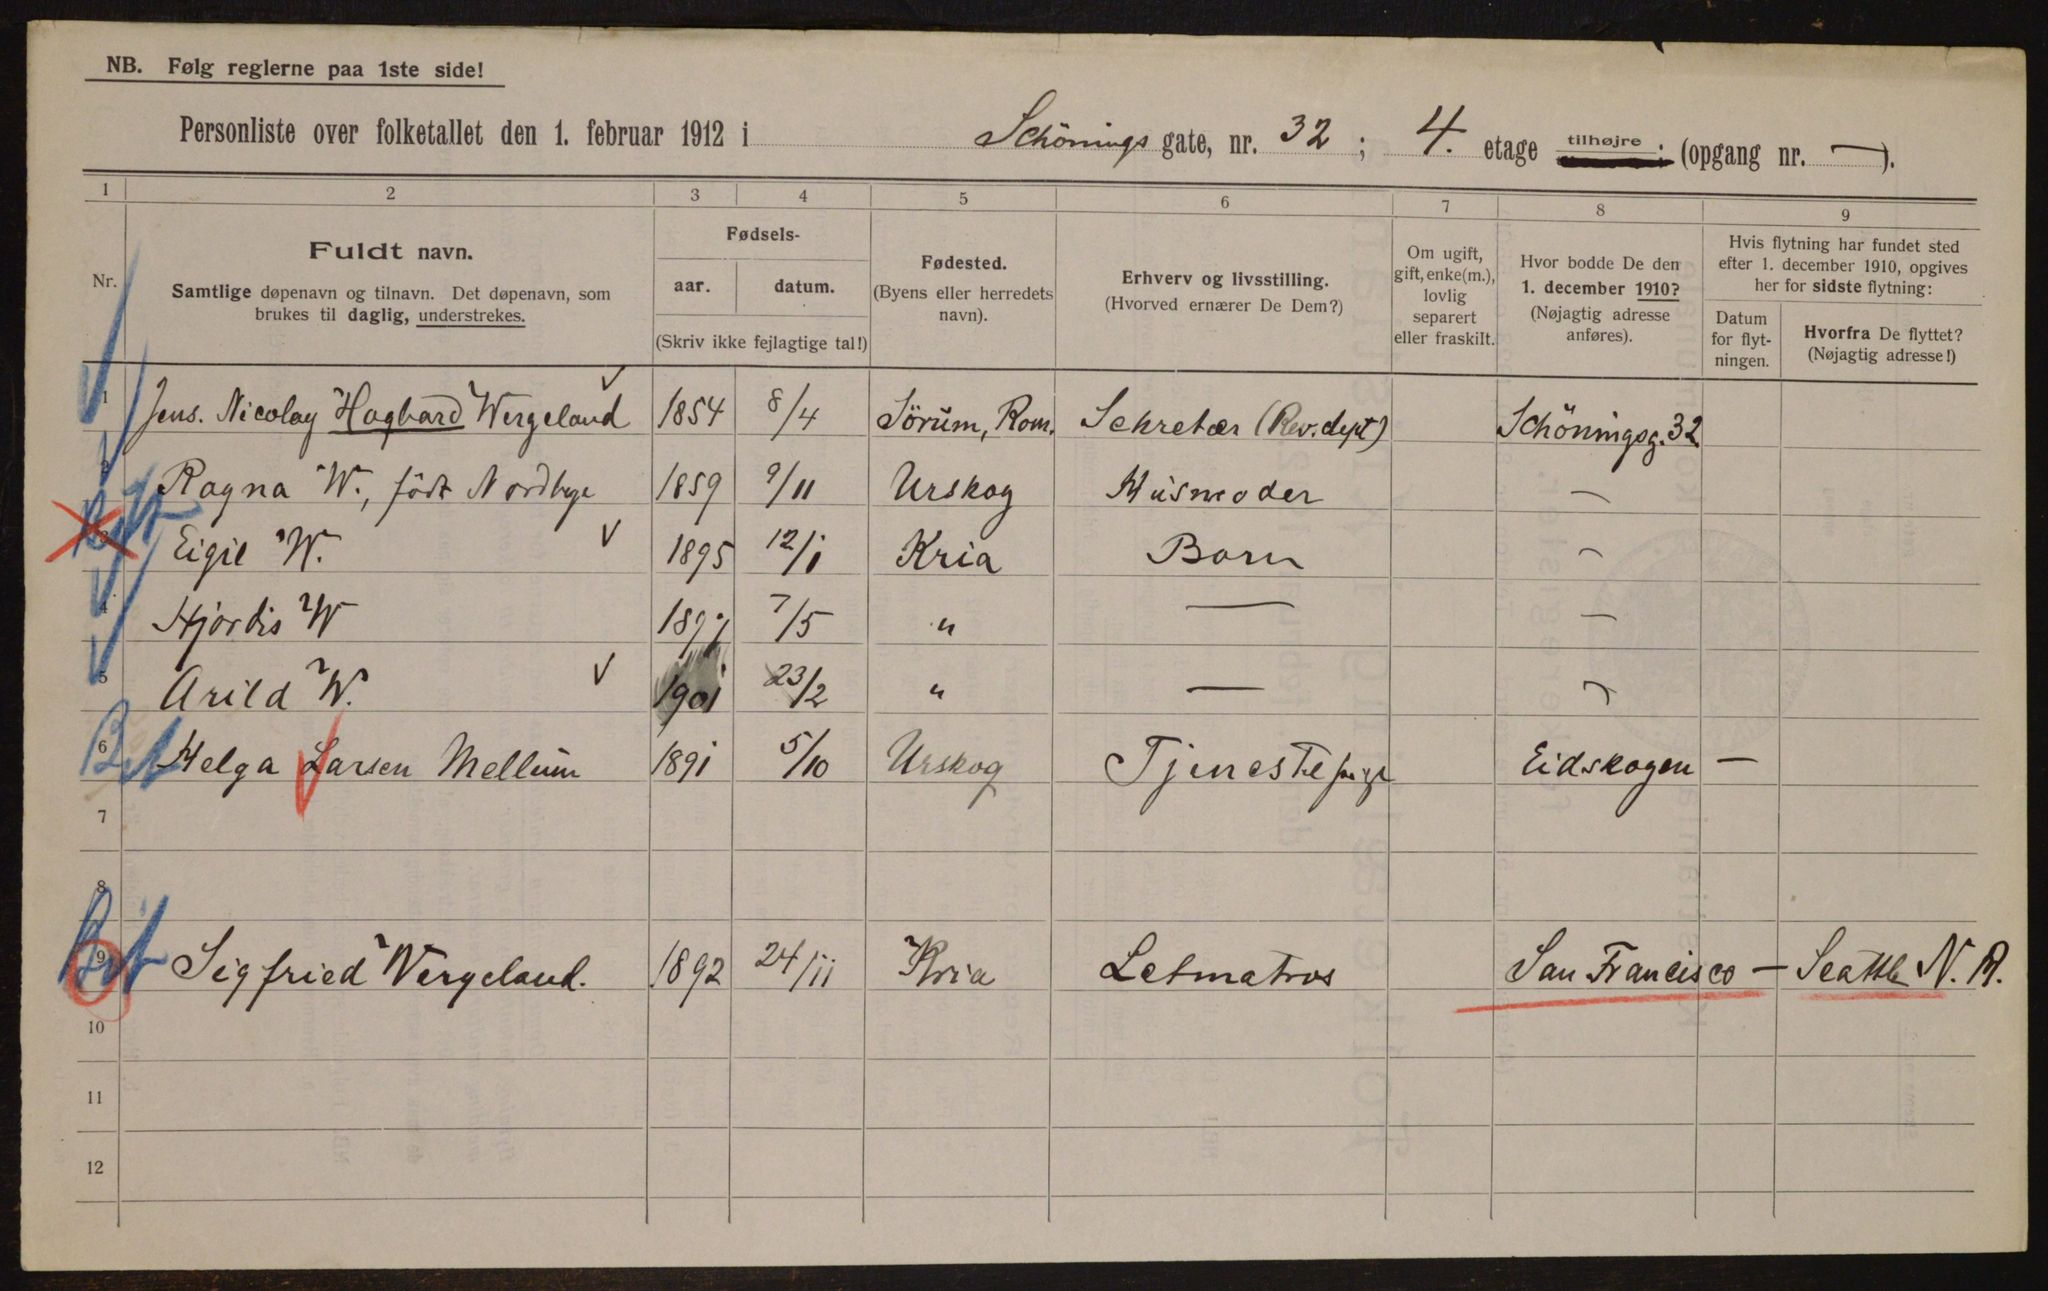 NB. Følg reglerne paa 1ste side!
Personliste over folketallet den 1. februar 1912 i Schönings gate, nr. 32; 4. etage tilhøjre (opgang nr. —).
1 2 3 4 5 6 7 8 9
Nr.
Fuldt navn.
Samtlige døpenavn og tilnavn. Det døpenavn, som
brukes til daglig, understrekes.
Fødsels-
aar. datum.
(Skriv ikke fejlagtige tal!)
Fødested.
(Byens eller herredets
navn).
Erhverv og livsstilling.
(Hvorved ernærer De Dem?)
Om ugift,
gift, enke(m.),
lovlig
separert
eller fraskilt.
Hvor bodde De den
1. december 1910?
(Nøjagtig adresse
anføres).
Hvis flytning har fundet sted
efter 1. december 1910, opgives
her for sidste flytning:
Datum
for flyt-
ningen.
Hvorfra De flyttet?
(Nøjagtig adresse!)
1 Jens. Nicolay Hagbard Wergeland 1854 8/4 Sörum, Rom. Sekretær (Rev.dept) Schöningsg. 32
2 Ragna W., födt Nordbye 1859 9/11 Urskog Husmoder —
3 Eigil W. 1895 12/1 Kria Barn —
4 Hjördis W 1897 7/5 " — —
5 Arild W. 1901 23/2 " — —
6 Helga Larsen Mellum 1891 5/10 Urskog Tjenestepige Eidskogen —
7
8
9 Sigfried Wergeland. 1892 24/11 Kria Letmatros San Francisco — Seattle N. A.
10
11
12